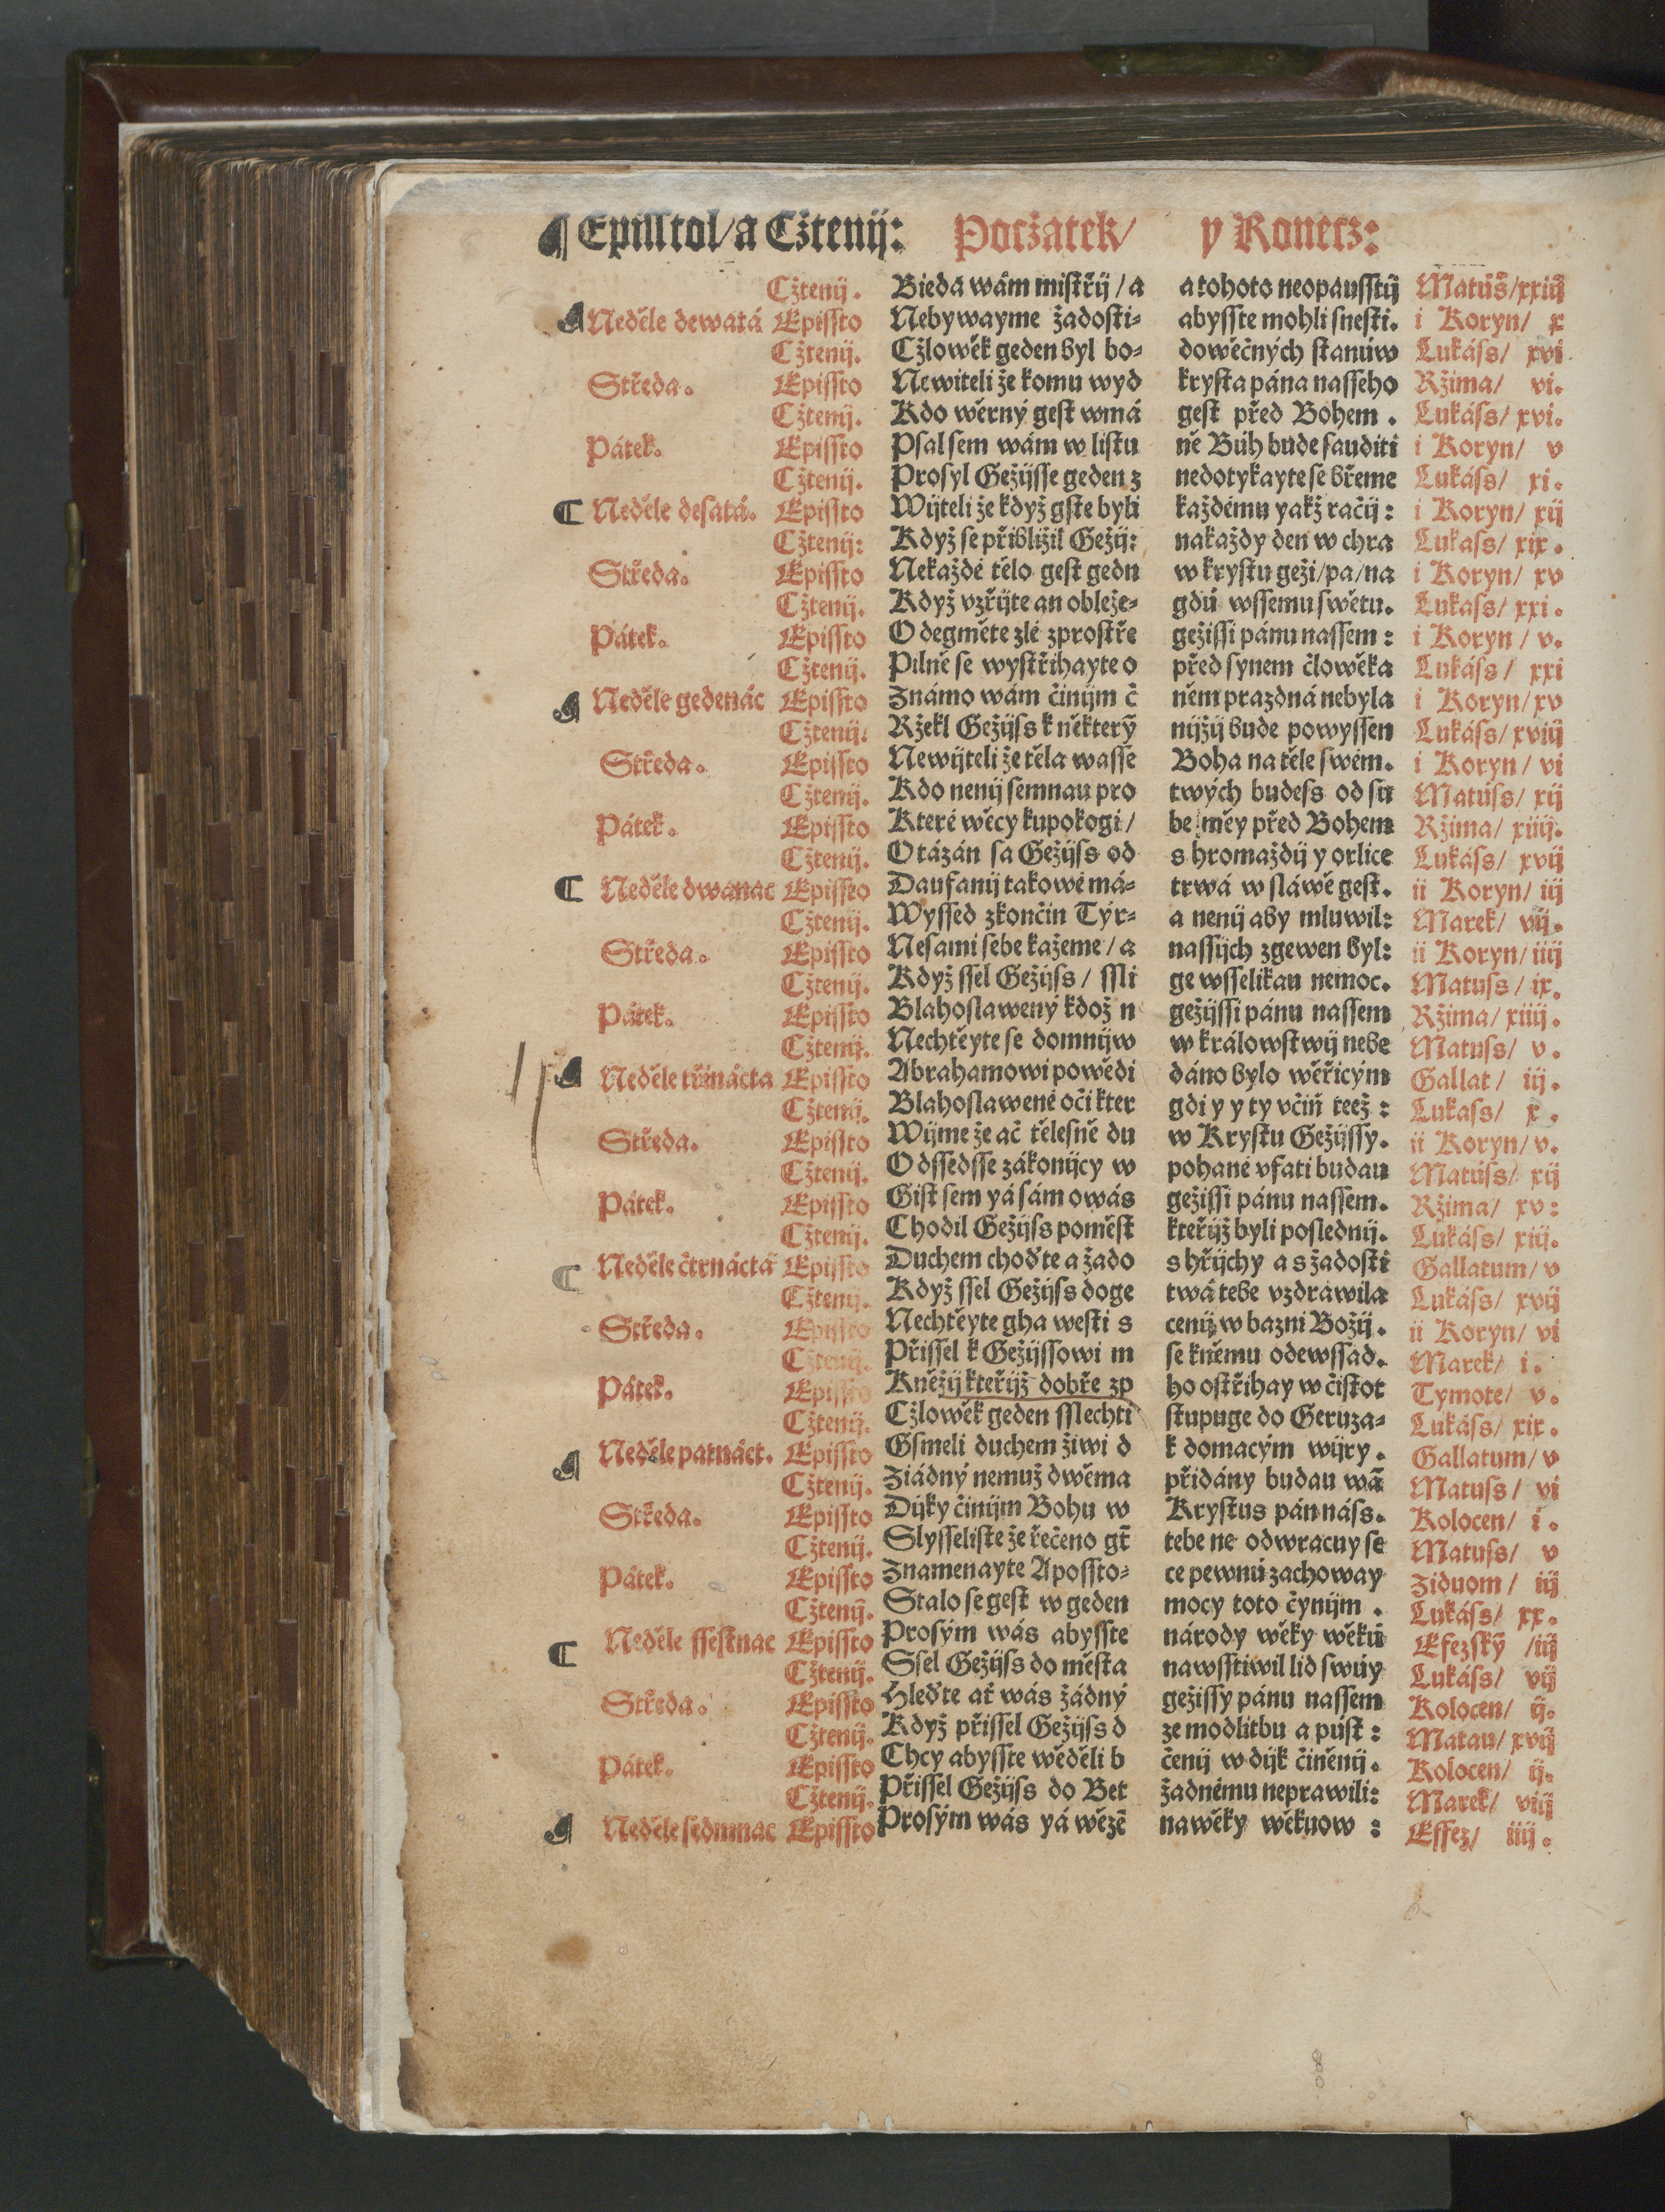 ¶ Episstol/a Cžtenij: Počžatek/ y Konecz:
Cžtenij. Bieda wám mistřij / a a tohoto neopausstij Matúss/xxiij
¶ Neděle dewatá Epissto Nebywayme žadosti- abysste mohli snesti. i Koryn/ x
Cžtenij. Cžlowěk geden byl bo- dowěčných stanúw Lukáss/ xvi
Středa. Epissto Newiteli že komu wyd krysta pána nasseho Ržima/ vi.
Cžtenij. Kdo wěrný gest wmá gest před Bohem. Lukáss/ xvi.
Pátek. Epissto Psal sem wám w listu ně Búh bude sauditi i Koryn/ v
Cžtenij. Prosyl Gežijsse geden z nedotykayte se břeme Lukáss/ xi.
C Neděle desatá. Epissto Wijteli že když gste byli každému yakž račij: i Koryn/ xij
Cžtenij: Když se přibližil Gežij: nakaždy den w chra Lukass/ xix.
Středa. Epissto Nekaždé tělo gest gedn w krystu geži/pa/na i Koryn/ xv
Cžtenij. Když vzřijte an obleže- gdú wssemu swětu. Lukass/ xxi.
Pátek. Epissto Odegměte zlé zprostře gežissi pánu nassem: i Koryn / v.
Cžtenij. Pilně se wystřihayte o před synem člowěka Lukáss / xxi
¶ Neděle gedenác Epissto Známo wám činijm č něm prazdná nebyla i Koryn/xv
Cžtenij: Ržekl Gežijss k některỹ nijžij bude powyssen Lukáss/xviij
Středa. Epissto Newijteli že těla wasse Boha na těle swém. i Koryn/ vi
Cžtenij. Kdo nenij semnau pro twých budess od su Matúss/ xij
Pátek. Epissto Které wěcy kupokogi/ be měy před Bohem Ržima/ xiiij.
Cžtenij. Otázán sa Gežijss od shromaždij y orlice Lukáss/ xvij
C Neděle dwanac Epissto Daufanij takowé má- trwá w sláwě gest. ii Koryn/ iij
Cžtenij. Wyssed zkončin Týr- a nenij aby mluwil: Marek/ vij.
Středa. Epissto Nesami sebe kažeme/a nassijch zgewen byl: ii Koryn/iiij
Cžtenij. Když ssel Gežijss/ ssli ge wsselikau nemoc. Matuss/ ix.
Pátek. Epissto Blahoslawený kdož n gežijssi pánu nassem Ržima/ xiiij.
Cžtenij. Nechtěyte se domnijw w králowstwij nebe Matuss/ v.
¶ Neděle třinácta Epissto Abrahamowi powědi dáno bylo wěřicým Gallat/ iij.
Cžtenij. Blahoslawené oči kter gdi y y ty včiň teež: Lukass/ x.
Středa. Epissto Wijme že ač tělesně du w Krystu Gežijssy. ii Koryn/ v.
Cžtenij. Odssedsse zákonijcy w pohané vfati budau Matúss/ xij
Pátek. Epissto Gist sem yá sám o wás gežissi pánu nassem. Ržima/ xv:
Cžtenij. Chodil Gežijss poměst kteřijž byli poslednij. Lukáss/ xiij.
C Neděle čtrnáctá Epissto Duchem choďte a žado s hřijchy a s žadosti Gallatum/ v
Cžtenij. Když ssel Gežijss doge twá tebe vzdrawila Lukáss/ xvij
Středa. Epissto Nechtěyte gha westi s cenij w bazni Božij. ii Koryn/ vi
Cžtenij. Přissel k Gežijssowi m se kněmu odewssad. Marek/ i.
Pátek. Epissto Kněžij kteřijž dobře zp ho ostřihay w čistot Tymote/ v.
Cžtenij. Cžlowěk geden sslechti stupuge do Geruza- Lukáss/ xix.
¶ Neděle patnáct. Epissto Gsmeli duchem žiwi d k domacým wijry. Gallatum/ v
Cžtenij. Žiádný nemuž dwěma přidány budau wã Matuss/ vi
Středa. Epissto Dijky činijm Bohu w Krystus pán náss. Kolocen/ i.
Cžtenij. Slysseliste že řečeno gt̃ tebe ne odwracuy se Matuss/ v
Pátek. Epissto Znamenayte Apossto- ce pewnú zachoway Ziduom/ iij
Cžtenij. Stalo se gest w geden mocy toto čynijm. Lukáss/ xx.
C Neděle ssestnac Epissto Prosým wás abysste národy wěky wěkú Efezskỹ /iij
Cžtenij. Ssel Gežijss do města nawsstiwil lid swúy Lukáss/ vij
Středa. Epissto Hleďte ať wás žádný gežissy pánu nassem Kolocen/ ij.
Cžtenij. Když přissel Gežijss d ze modlitbu a púst: Matau/ xvij
Pátek. Epissto Chcy abysste wěděli b čenij w dijk činěnij. Kolocen/ ij.
Cžtenij. Přissel Gežijss do Bet žadnému neprawili: Marek/ viij
¶ Neděle sedmnac Epissto Prosým wás yá wězẽ nawěky wěkuow: Effez/ iiij.